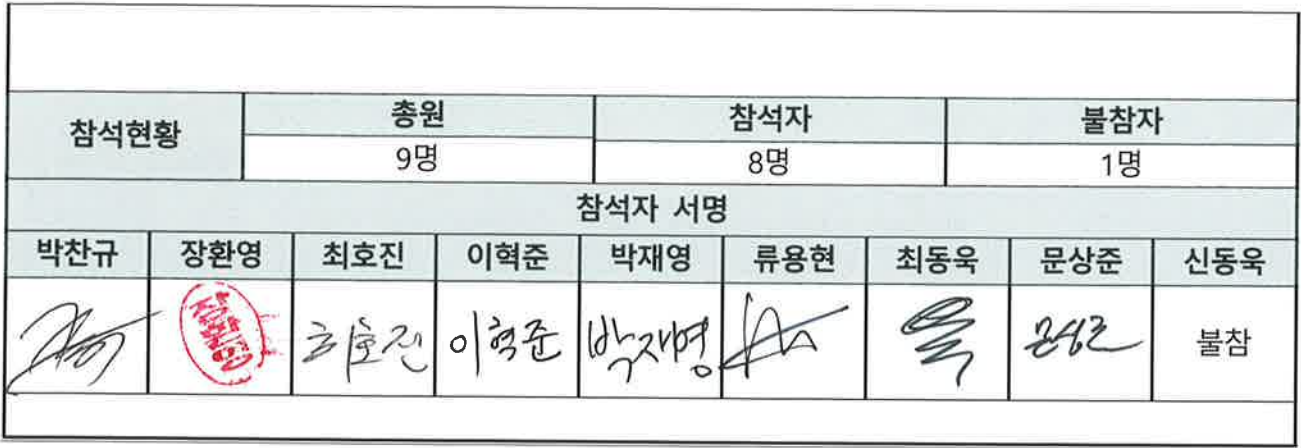 참석현황 총원 참석자 불참자
9명 8명 1명
참석자 서명
박찬규 장환영 최호진 이혁준 박재영 류용현 최동욱 문상준 신동욱
최호진 이혁준 박재영 불참